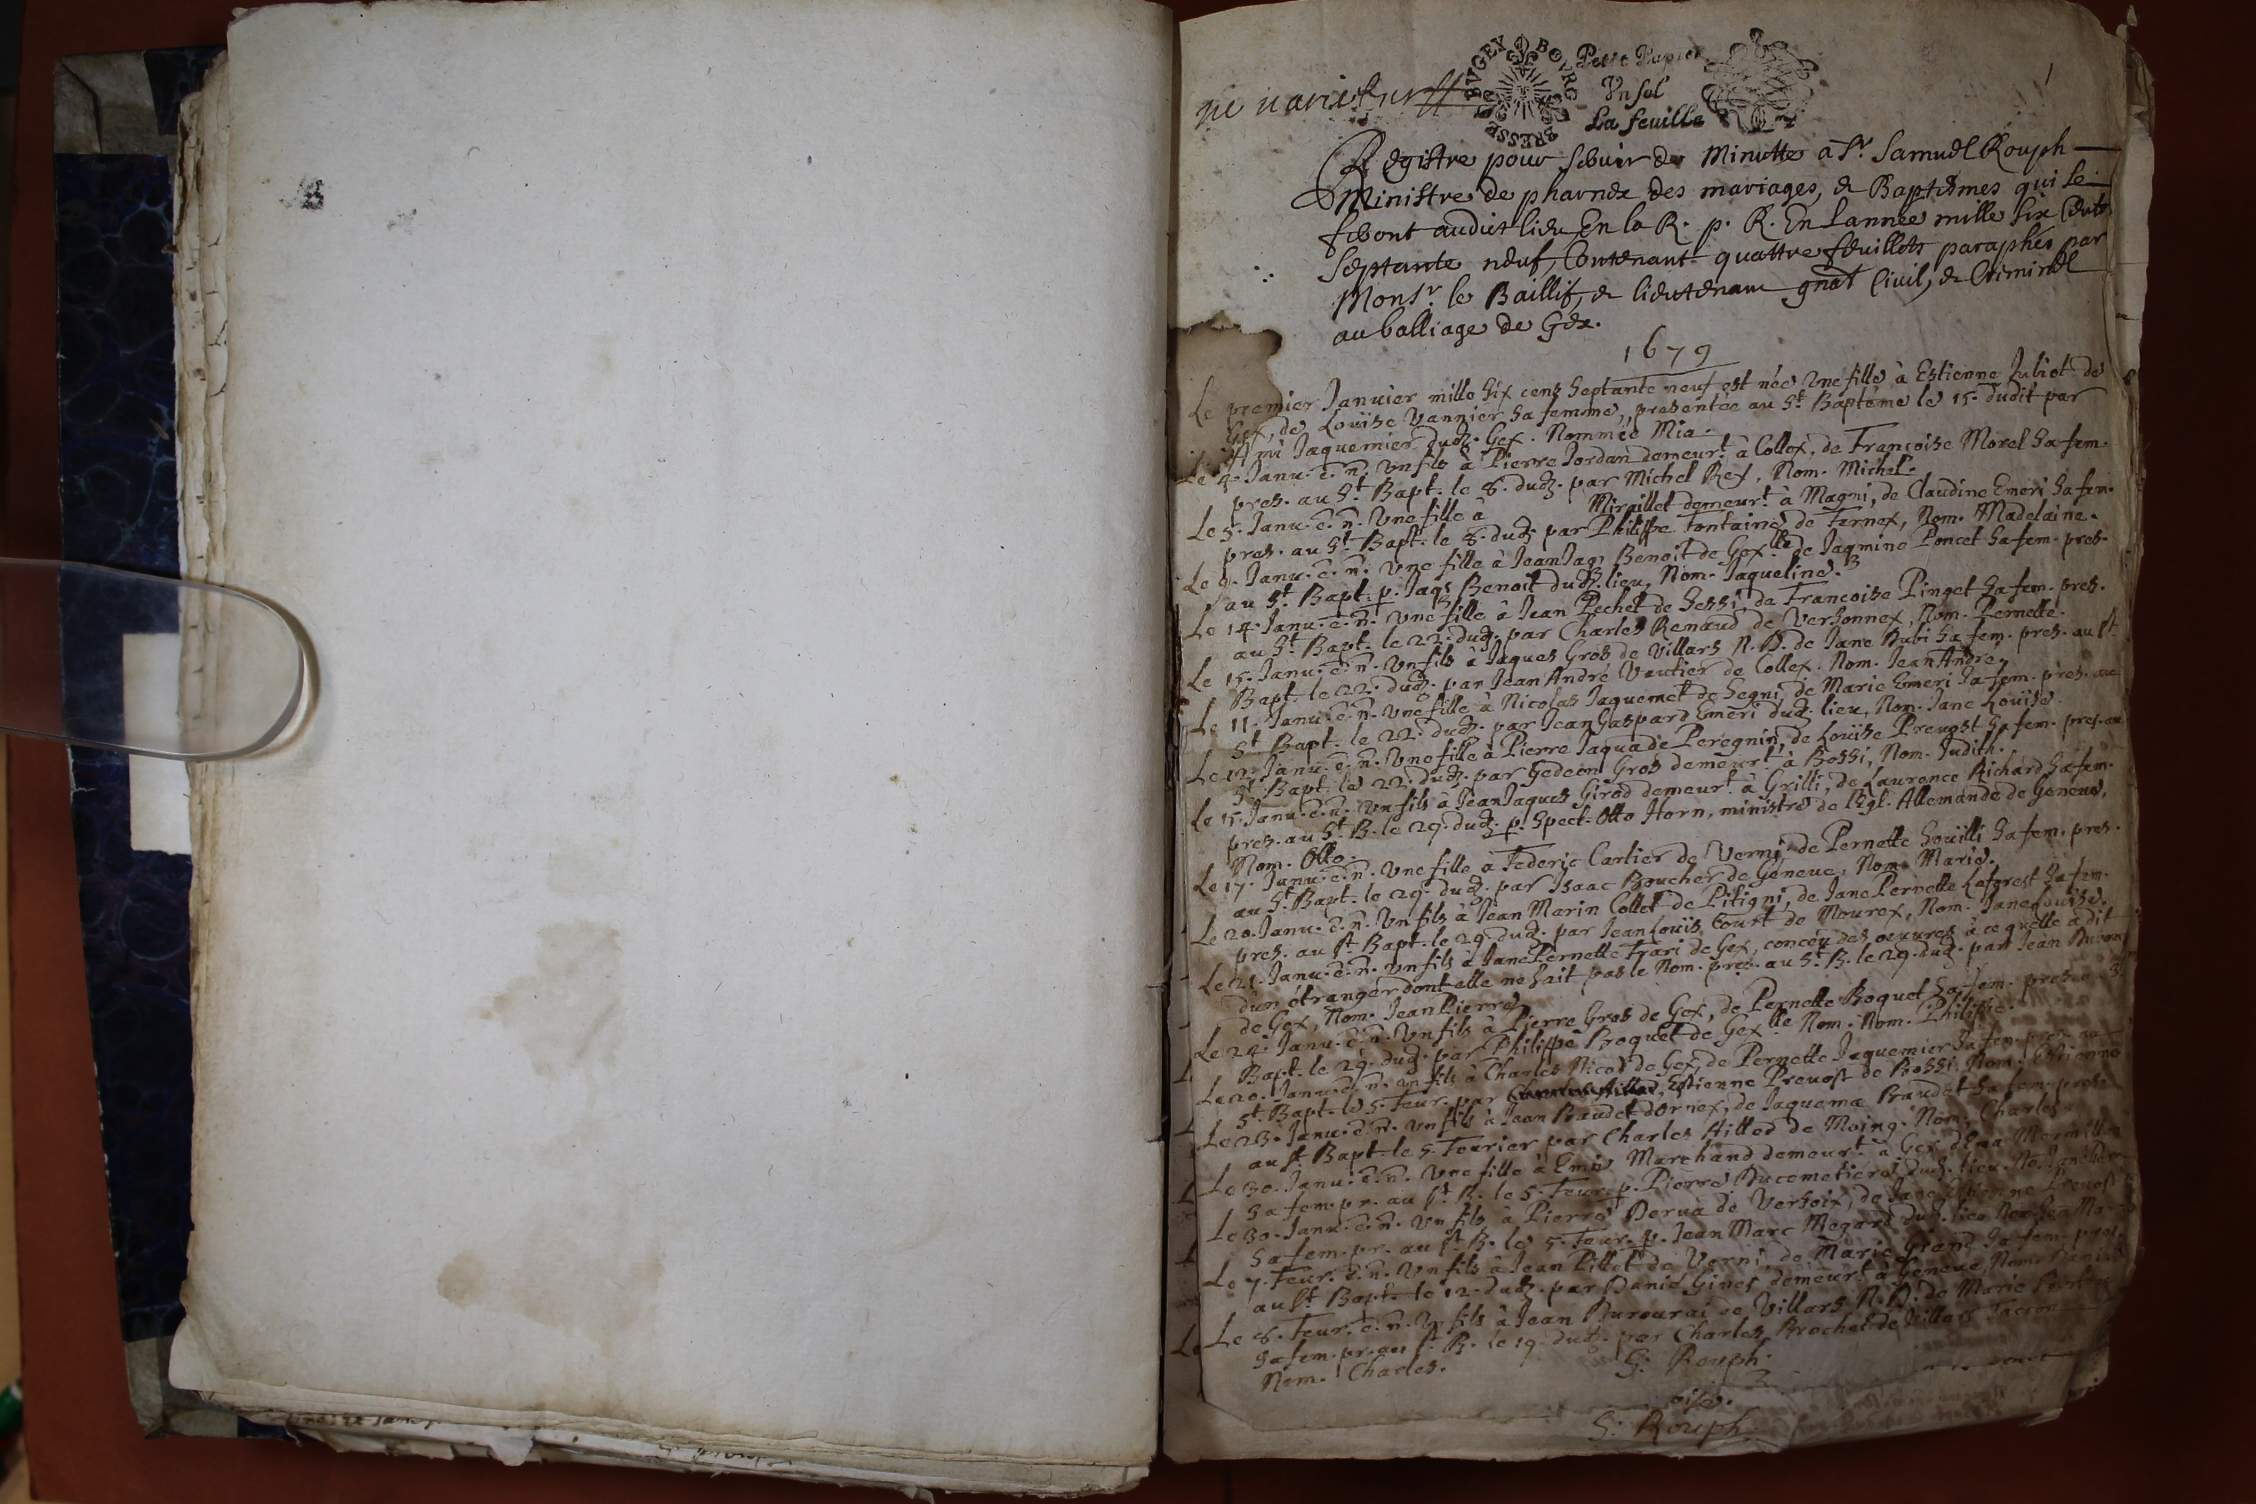 ne varietur
BVGEX BOVRG BRESSE
Petit Papier
Vn sol
La feuille
1
Registre pour seruir de Minutte a Sr. Samuel Rouph
Ministre de pharnex des mariages, & Baptesmes qui se
feront audict lieu En la R. p. R. En Lannée mille six Cents
septante neuf, Contenant quattre feuillets paraphés par
Monsr. le Baillif, & lieutenant gnãl Ciuil, & Criminel
au balliage de Gex.
1679
Le premier Januier mille six cens septante neuf est née Vne fille à Estienne Jubiot de
Gex, de Louïse Vannier sa femme, presentée au St. Baptême le 15. dudit par
Ami Jaquemier dud. Gex. Nommée Mia.
Le 4. Janu. ē. n. Vn fils à Pierre Jordan demeurt. à Collex, de Françoise Morel sa fem.
pres. au St. Bapt. le 8. dud. par Michel Rey, Nom. Michel.
Le 5. Janu. ē. n. Vne fille à Miraillet demeurt. à Magni, de Claudine Emeri sa fem.
pres. au St. Bapt. le 8. dud. par Philippe Fontaine de Fernex, Nom. Madelaine.
Le 9. Janu. ē. n. Vne fille à Jean Jaqs Benoit de Gex de Jaqmine Poncet sa fem. pres.
au St. Bapt. p. Jaqs Benoit dud. lieu, Nom. Jaqueline.
Le 14. Janu. ē. n. Vne fille à Jean Pechet de Sessi, de Françoise Pinget sa fem. pres.
au St. Bapt. le 22. dud. par Charles Renaud de Versonnex, Nom. Pernette.
Le 15. Janu. ē. n. Vn fils à Jaques Gros de Villars N. D. de Jane Bubi sa fem. pres. au St.
Bapt. le 22. dud. par Jean André Vautier de Collex. Nom. Jean André.
Le 11. Janu. ē. n. Vne fille à Nicolas Jaquemet de Segni, de Marie Emeri sa fem. pres. au
St. Bapt. le 22. dud. par Jean Gaspard Emeri dud. lieu, Nom. Jane Louïse.
Le 12. Janu. ē. n. Vne fille à Pierre Jaqua de Peregnin, de Louïse Preuost sa fem. pres. au
St. Bapt. le 22. dud. par Gedeon Gros demeurt. à Bossi, Nom. Judith.
Le 15. Janu. ē. n. Vn fils à Jean Jaques Girod demeurt. à Grilli, de Laurence Richard sa fem.
pres. au St. B. le 29. dud. p. Spect. Otto Horn, ministre de l'Egl. Allemande de Geneue,
Nom. Otto.
Le 17. Janu. ē. n. Vne fille à Federic Cartier de Verni, de Pernette Souïlli sa fem. pres.
au St. Bapt. le 29. dud. par Isaac Boucher de Geneue, Nom. Marie.
Le 20. Janu. ē. n. Vn fils à Jean Marin Collet de Pitigni, de Jane Pernette Laforest sa fem.
pres. au St Bapt. le 29. dud. par Jean Louïs Court de Mourex, Nom. Jane Louïse.
Le 21. Janu. ē. n. Vn fils à Jane Pernette Frari de Gex, conceu des oeuures à ce quelle a dit
d'un étranger dont elle ne sait pas le Nom. pres. au St. B. le 29. dud. par Jean
de Gex, Nom. Jean Pierre.
Le 24. Janu. ē. n. Vn fils à Pierre Gros de Gex, de Pernette Boquet sa fem. pres.
Bapt. le 29. dud. par Philippe Proquet de Gex. Nom. Philippe.
Le 20. Janu. ē. n. Vn fils à Charles Nicod de Gex, de Pernette Jaquemier sa fem. pres. au
St. Bapt. le 5. Feur. par Estienne Preuost de Bossi. Nom. Estienne
Le 23. Janu. ē. n. Vn fils à Jean Baudet d'Ornex, de Jaquema Baudet sa fem. pres.
au St. Bapt. le 5. Feurier par Charles Aillod de Moing. Nom. Charles
Le 30. Janu. ē. n. Vne fille à Emi Marchand demeurt. à Gex
sa fem. pr. au St B. le 5. Feur. p. Pierre Ducemetiere dud. lieu
Le 30. Janu. ē. n. Vn fils à Pierre Derua de Versoix, de Jane Preuost
sa fem. pr. au St B. le 5. Feur. p. Jean Marc Megard dud. lieu
Le 7. Feur. ē. n. Vn fils à Jean Pittet de Verni, de Marie Grand sa fem. pres.
au St Bapt. le 12. dud. par Daniel Ginet demeurt. à Geneue Nom. Daniel
Le 8. Feur. ē. n. Vn fils à Jean Durourai de Villars N. D. de Marie
sa fem. pr. au St B. le 19. dud. par Charles Brochet de Villars Tacon
Nom. Charles.
S: Rouph.
S: Rouph